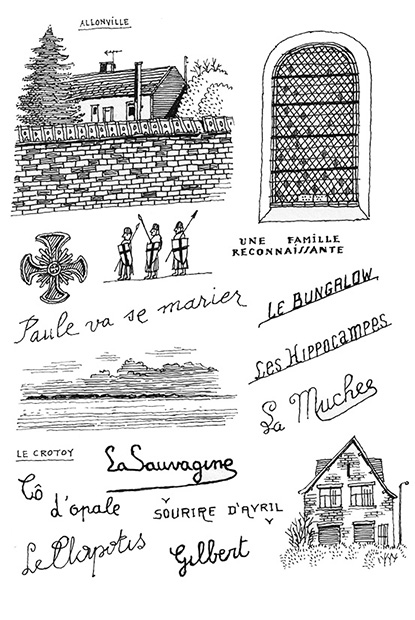 ALLONVILLE
UNE FAMILLE
RECONNAISSANTE
Paule va se marier
LE BUNGALOW
LES HIPPOCAMPES
La Muchee
LE CROTOY
La Sauvagine
Cô
d'opale
SOURIRE D'AVRIL
Le Clapotis
Gilbert